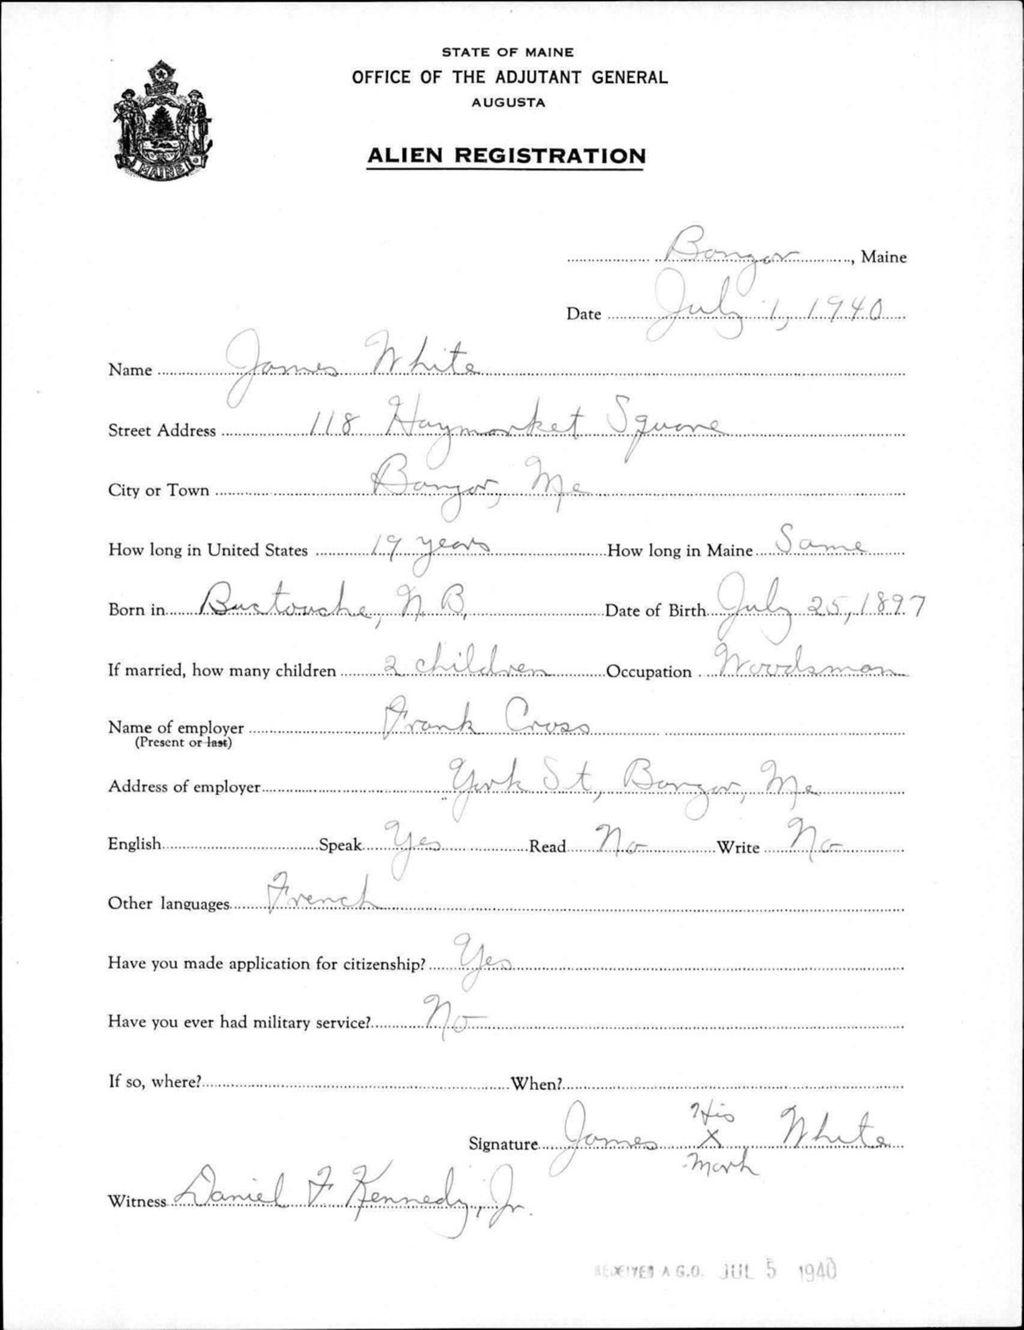 STATE OF MAINE
OFFICE OF THE ADJUTANT GENERAL
AUGUSTA
ALIEN REGISTRATION
MAINE
Bangor, Maine
Date July 1, 1940
Name James White
Street Address 118 Haymarket Square
City or Town Bangor, Me
How long in United States 19 years How long in Maine Same
Born in Buctouche, N.B. Date of Birth July 25, 1897
If married, how many children 2 children Occupation Woodsman
Name of employer Frank Cross
(Present or last)
Address of employer York St, Bangor, Me
English Speak Yes Read No Write No
Other languages French
Have you made application for citizenship? Yes
Have you ever had military service? No
If so, where? When?
His
Signature James X White
Mark
Witness Daniel F Kennedy, Jr.
RECEIVED A.G.O. JUL 5 1940